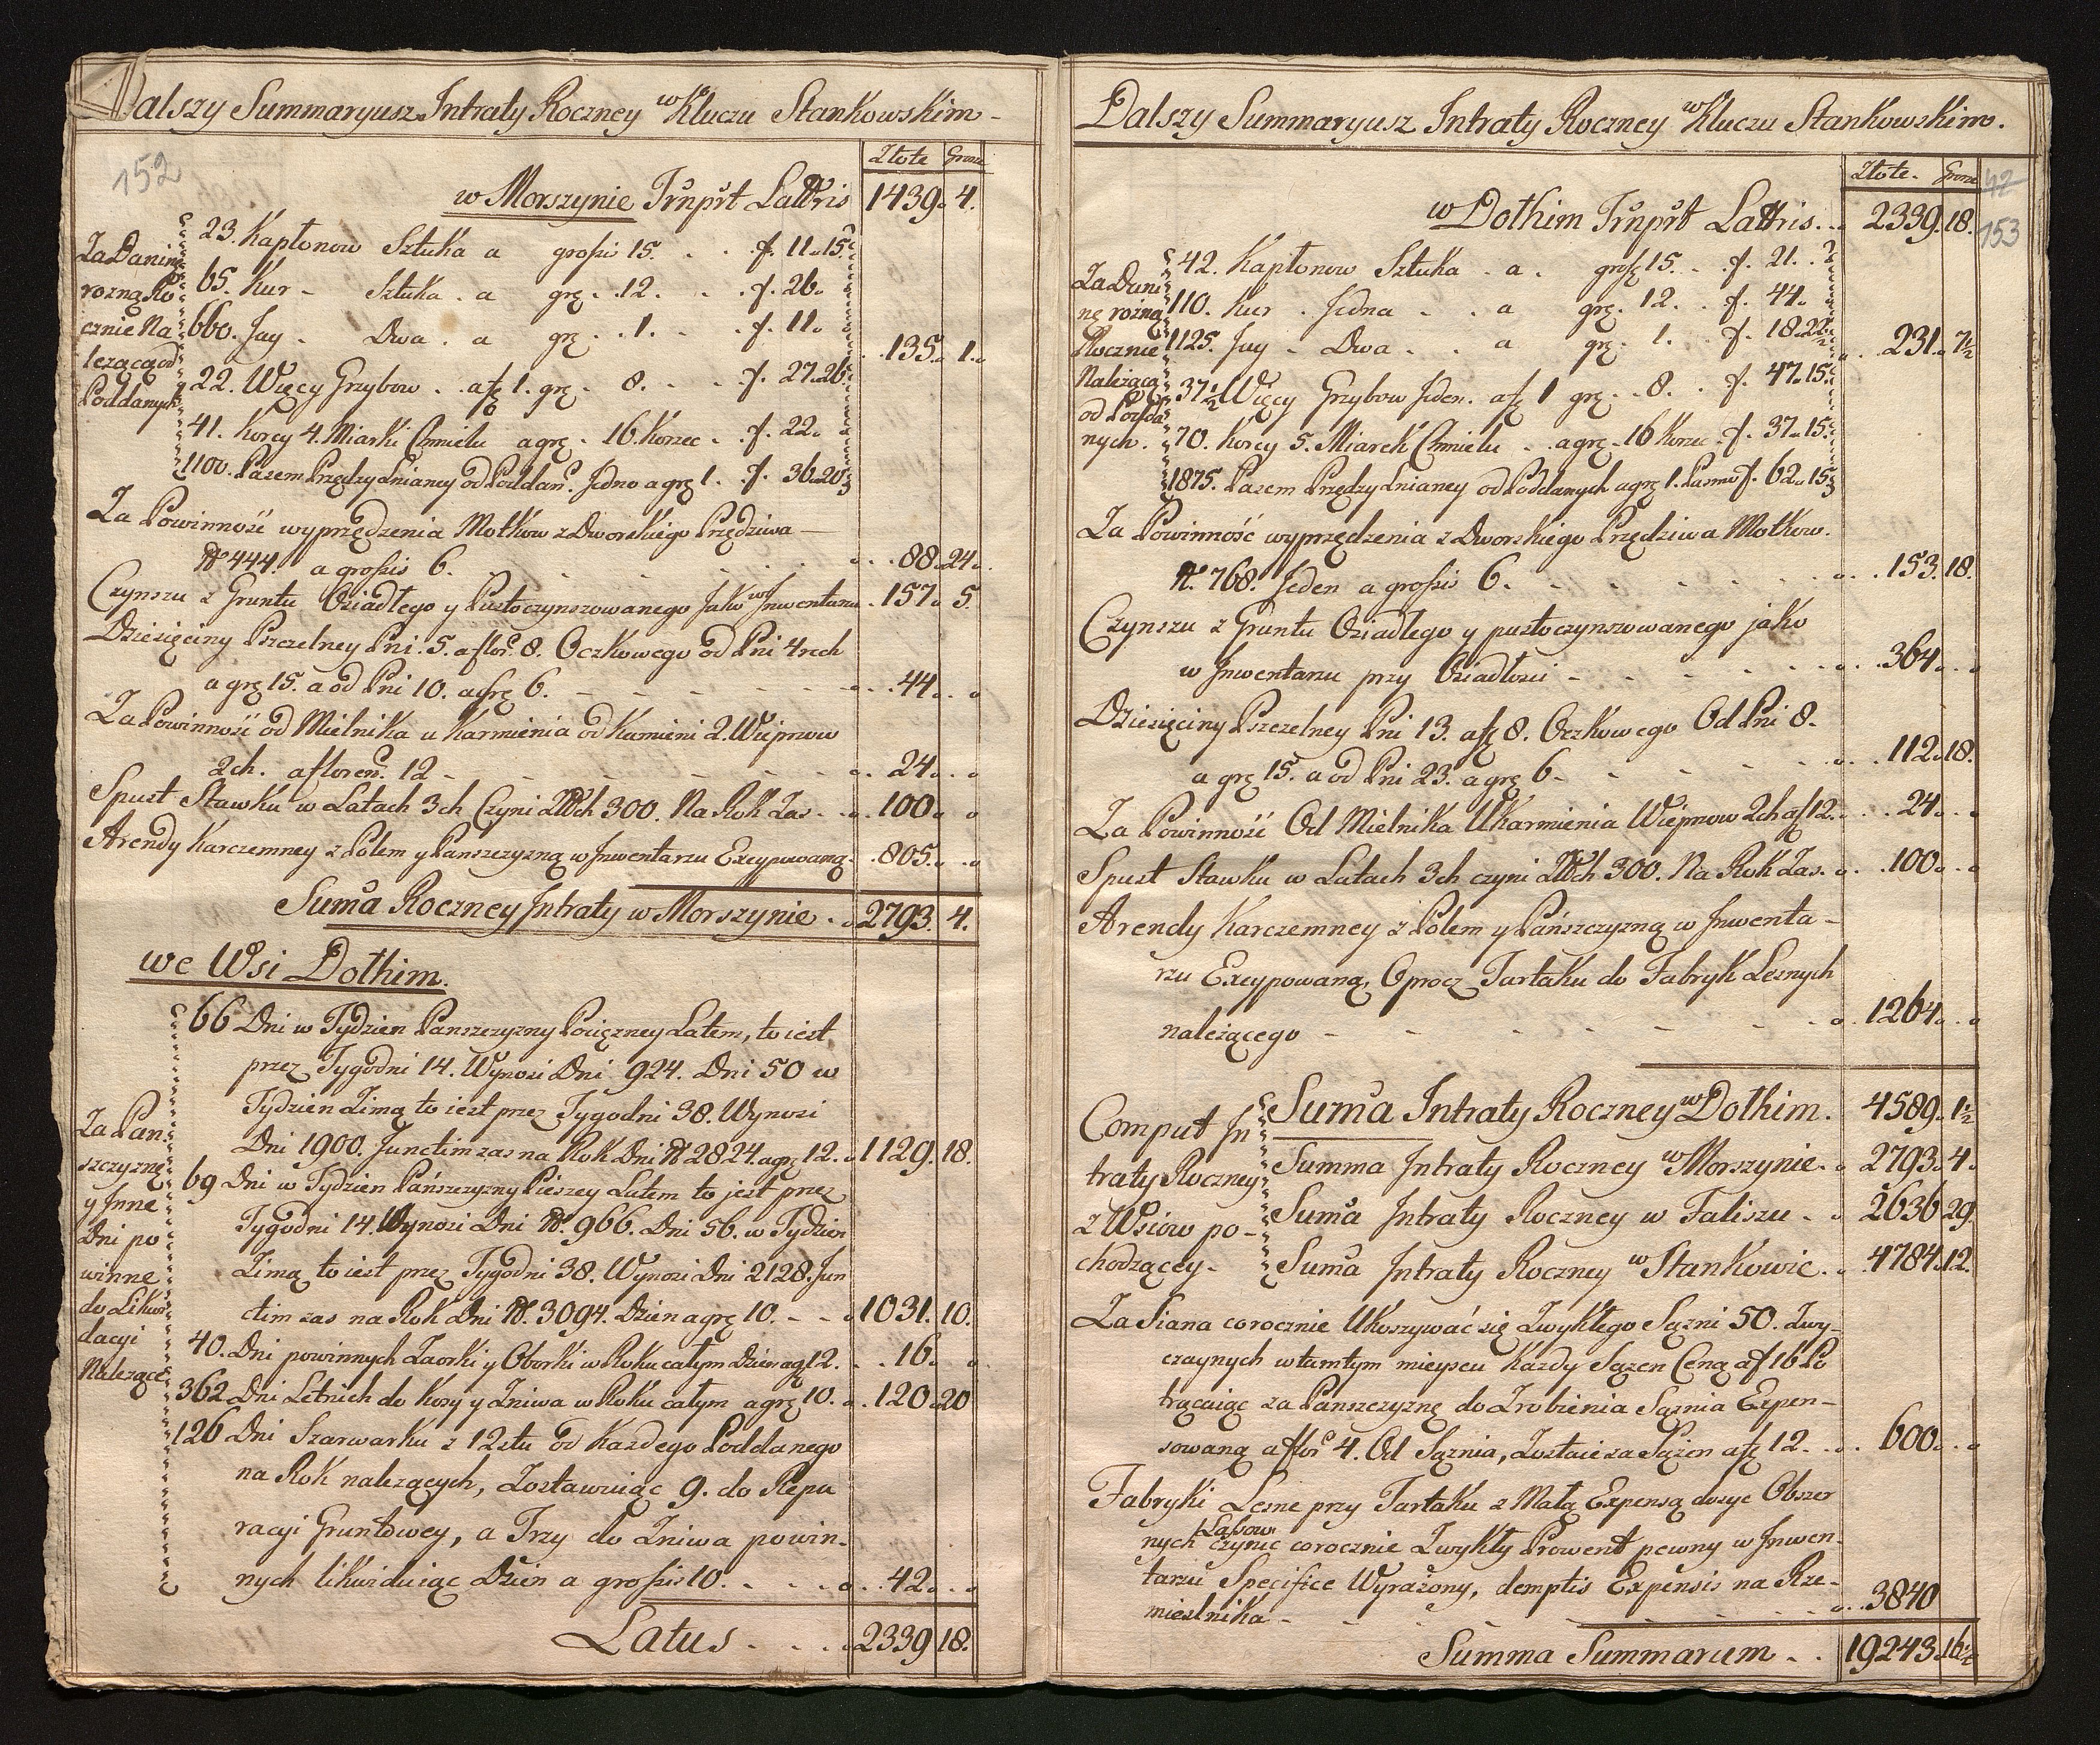 Dalszy Summaryusz Intraty Roczney w Kluczu Stankowskim
152
Złote Grosze
w Morszynie Trnprt Lattris 1439. 4.
Za Daninę
rozną Ro
cznie Na
lezącą od
Poddanych
23. Kapłonow Sztuka a groszis 15. . . f. 11. 15.
65. Kur - Sztuka . a grę. . 12. . . f. 26.
660. Jay . Dwa . a grę . 1. . . f. 11.
135. 1.
22. Więcy Grzybow . . a fl 1. grę . 8. . . f. 27. 26.
41. Korcy 4. Miarki Chmielu a grę . 16. Korzec . f. 22.
1100. Pasem Przędzy Lnianey od Poddan. Jedno a grę 1. f. 36. 20.
Za Powinność wyprzędzenia Motkow z Dworskiego Przędziwa
N 444. a groszis 6. . . 88. 24.
Czynszu z Gruntu Osiadłego y Pustoczynszowanego Jako w Inwentarzu . 157. 5.
Dziesięciny Pszczelney Pni . 5. a flor. 8. Oczkowego od Pni 4rech
a grę 15. a od Pni 10. a grę 6. . . 44.
Za Powinność od Mielnika u Karmienia od Kamieni 2. Wieprzow
2ch. a floren. 12 - . . 24.
Spust Stawku w Latach 3ch Czyni Złłch 300. Na Rok Zas . . 100.
Arendy Karczemney z Polem y Panszczyzną w Inwentarzu Excypowaną . 805.
Suma Roczney Intraty w Morszynie . 2793. 4.
we Wsi Dołhim.
Za Pan
szczyznę
y Inne
Dni po
winne
do Likwi
dacyi
Nalezące
66 Dni w Tydzien Panszczyzny Pocięzney Latem, to iest
przez Tygodni 14. Wynosi Dni 924. Dni 50 w
Tydzien Zimą to iest przez Tygodni 38. Wynosi
Dni 1900. Junctim zas na Rok Dni N 2824. a grę 12. 1129. 18.
69 Dni w Tydzien Pańszczyzny Pieszey Latem to jest przez
Tygodni 14. Wynosi Dni N. 966. Dni 56. w Tydzien
Zimą to iest przez Tygodni 38. Wynosi Dni 2128. Jun
ctim zas na Rok Dni N. 3094. Dzien a grę 10. - - 1031. 10.
40. Dni powinnych Zaorki y Oborki w Roku całym Dzien a g 12. . . 16.
362 Dni Letnich do Kosy y Zniwa w Roku całym a grę 10. . 120. 20
126 Dni Szarwarku z 12stu od Kazdego Poddanego
na Rok nalezących, zostawuiąc 9. do Repa
racyi Gruntowey, a Trzy do Zniwa powin-
nych likwiduiąc Dzien a groszis 10. . . . 42.
Latus . . . 2339 18.
Dalszy Summaryusz Intraty Roczney w Kluczu Stankowskim.
Złote. Grosze
42
153
w Dołhim Trnprt Lattris . . 2339. 18.
Za Dani
nę rozną
Rocznie
Nalezącą
od Podda
nych.
42. Kapłonow Sztuka . a . grosz 15. . f. 21.
110. Kur . Jedna . . a grę. 12. . f. 44.
1125. Jay - Dwa . . a grę. 1. f. 18. 22½
231. 7½
37½ Więcy Grzybow Jeden. a fl 1 grę. . 8. . f. 47. 15.
70. Korcy 5. Miarek Chmielu . a grę . 16 Korzec . f. 37. 15.
1875. Pasem Przędzy Lnianey od Poddanych a grę 1. Pasmo f. 62. 15
Za Powinność wyprzędzenia z Dworskiego Przędziwa Motkow.
N. 768. Jeden a groszis 6. . . 153. 18.
Czynszu z Gruntu Osiadłego y pustoczynszowanego jako
w Inwentarzu przy Osiadłosci - . . 364.
Dziesięciny Pszczelney Pni 13. a fl 8. Oczkowego Od Pni 8.
a grę 15. a od Pni 23. a grę 6 - . . 112. 18.
Za Powinność Od Mielnika Ukarmienia Wieprzow 2ch a fl 12. . . 24.
Spust Stawku w Latach 3ch czyni Złłch 300. Na Rok Zas. . . 100.
Arendy Karczemney z Polem y Pańszczyzną w Inwenta-
rzu Excypowaną, Oprocz Tartaku do Fabryk Lesnych
należącego - . . 1264.
Comput In
traty Roczney
z Wsiow po-
chodzącey.
Suma Intraty Roczney w Dołhim. 4589. 1½
Summa Intraty Roczney w Morszynie. 2793. 4.
Suma Intraty Roczney w Faliszu . 2636 29.
Suma Intraty Roczney w Stankowie . 4784. 12.
Za Siana corocznie Ukoszywać się Zwykłego Sązni 50. Zwy-
czaynych w tamtym mieyscu Kazdy Sązen Ceną a fl 16 Po
trącaiąc za Panszczyznę do Zrobienia Sąznia Expen-
sowaną a flor 4. Od Sąznia, Zostaie za Sązen a fl 12. . . 600.
Fabryki Lesne przy Tartaku z Małą Expensą dosyc Obszer
nych Lassow czynic corocznie Zwykły Prowent pewny w Inwen-
tarzu Specifice Wyrażony, demptis Expensis na Rze-
mieslnika - . . 3840
Summa Summarum . . 19243. 16½